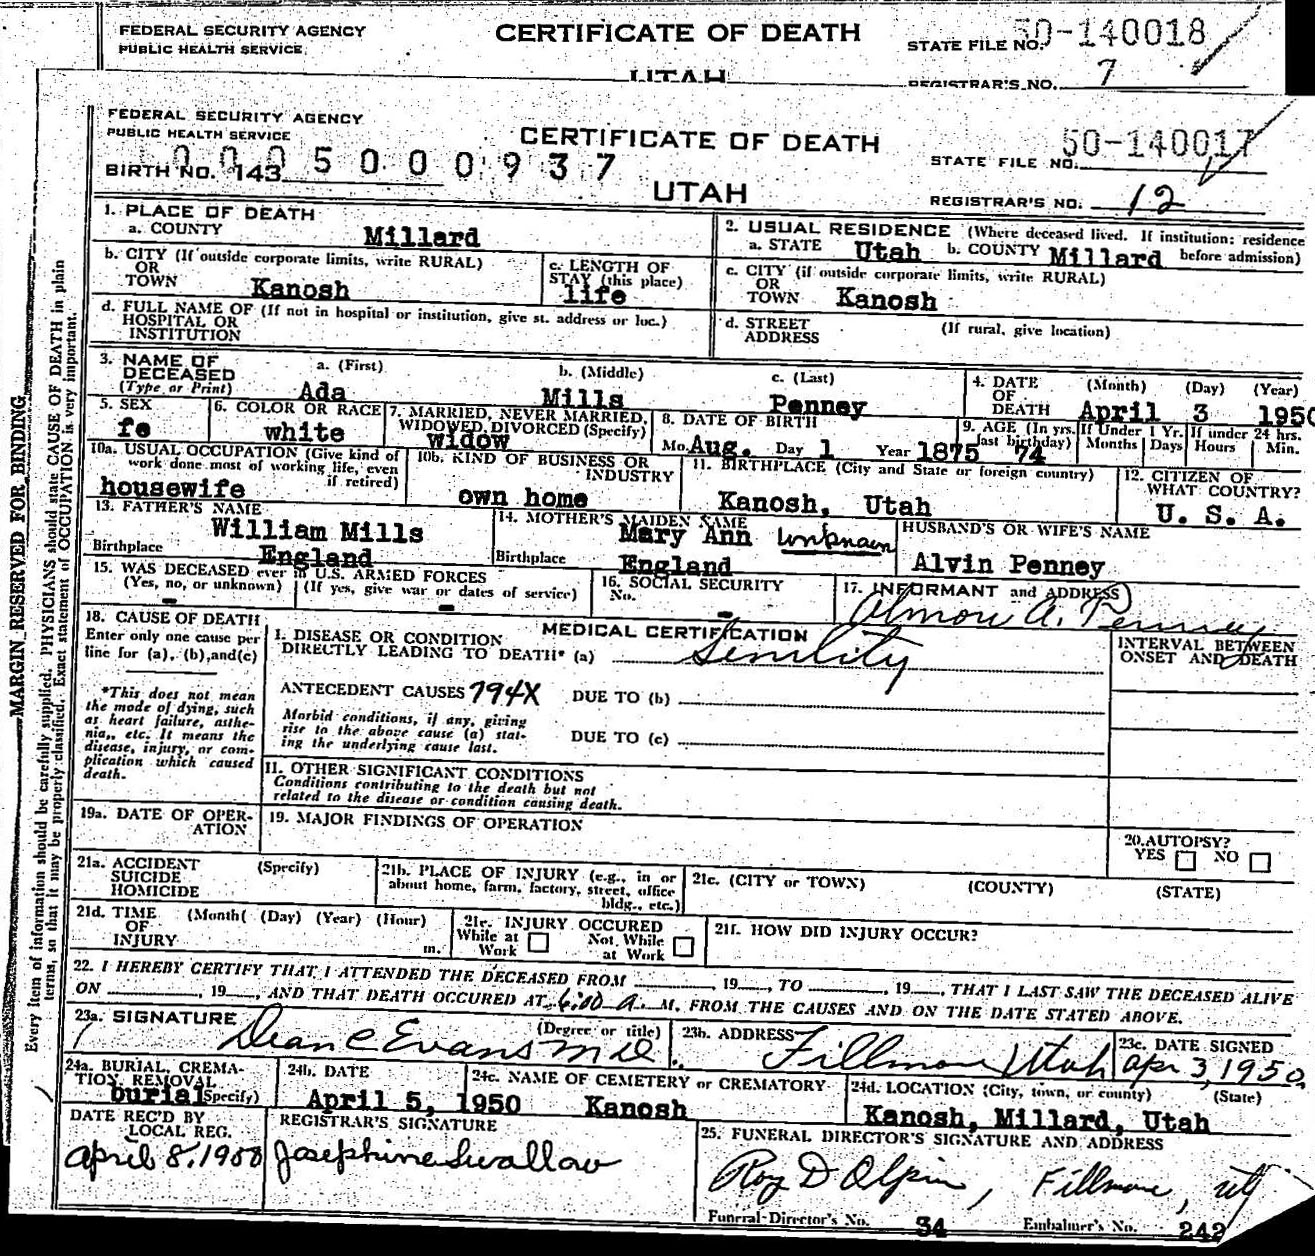 FEDERAL SECURITY AGENCY
PUBLIC HEALTH SERVICE
CERTIFICATE OF DEATH
STATE FILE NO. 50-140018
UTAH
REGISTRAR'S NO. 7
FEDERAL SECURITY AGENCY
PUBLIC HEALTH SERVICE
CERTIFICATE OF DEATH
50-140017
STATE FILE NO.
0005000937
BIRTH NO. 143
UTAH
REGISTRAR'S NO. 12
MARGIN RESERVED FOR BINDING
Every item of information should be carefully supplied. PHYSICIANS should state CAUSE OF DEATH in plain
terms, so that it may be properly classified. Exact statement of OCCUPATION is very important.
1. PLACE OF DEATH
a. COUNTY Millard
2. USUAL RESIDENCE (Where deceased lived. If institution: residence
a. STATE Utah b. COUNTY Millard before admission)
b. CITY (If outside corporate limits, write RURAL)
OR
TOWN Kanosh
c. LENGTH OF
STAY (this place)
life
c. CITY (if outside corporate limits, write RURAL)
OR
TOWN Kanosh
d. FULL NAME OF (If not in hospital or institution, give st. address or loc.)
HOSPITAL OR
INSTITUTION
d. STREET
ADDRESS
(If rural, give location)
3. NAME OF
DECEASED
(Type or Print)
a. (First)
Ada
b. (Middle)
Mills
c. (Last)
Penney
4. DATE
OF
DEATH
(Month) (Day) (Year)
April 3 1950
5. SEX
fe
6. COLOR OR RACE
white
7. MARRIED, NEVER MARRIED,
WIDOWED, DIVORCED (Specify)
widow
8. DATE OF BIRTH
Mo. Aug. Day 1 Year 1875
9. AGE (In yrs.
last birthday)
74
If Under 1 Yr.
Months Days
If under 24 hrs.
Hours Min.
10a. USUAL OCCUPATION (Give kind of
work done most of working life, even
if retired)
housewife
10b. KIND OF BUSINESS OR
INDUSTRY
own home
11. BIRTHPLACE (City and State or foreign country)
Kanosh, Utah
12. CITIZEN OF
WHAT COUNTRY?
U. S. A.
13. FATHER'S NAME
William Mills
Birthplace England
14. MOTHER'S MAIDEN NAME
Mary Ann Unknown
Birthplace England
HUSBAND'S OR WIFE'S NAME
Alvin Penney
15. WAS DECEASED ever in U.S. ARMED FORCES
(Yes, no, or unknown) (If yes, give war or dates of service)
- -
16. SOCIAL SECURITY
No.
-
17. INFORMANT and ADDRESS
Almon A. Penney
18. CAUSE OF DEATH
Enter only one cause per
line for (a), (b), and (c)
*This does not mean
the mode of dying, such
as heart failure, asthe-
nia, etc. It means the
disease, injury, or com-
plication which caused
death.
MEDICAL CERTIFICATION
I. DISEASE OR CONDITION
DIRECTLY LEADING TO DEATH* (a) Senility
ANTECEDENT CAUSES 794X DUE TO (b)
Morbid conditions, if any, giving
rise to the above cause (a) stat-
ing the underlying cause last.
DUE TO (c)
INTERVAL BETWEEN
ONSET AND DEATH
11. OTHER SIGNIFICANT CONDITIONS
Conditions contributing to the death but not
related to the disease or condition causing death.
19a. DATE OF OPER-
ATION
19. MAJOR FINDINGS OF OPERATION
20. AUTOPSY?
YES NO
21a. ACCIDENT
SUICIDE
HOMICIDE
(Specify)
21b. PLACE OF INJURY (e.g., in or
about home, farm, factory, street, office
bldg., etc.)
21c. (CITY or TOWN) (COUNTY) (STATE)
21d. TIME
OF
INJURY
(Month( (Day) (Year) (Hour)
m.
21e. INJURY OCCURED
While at
Work
Not While
at Work
21f. HOW DID INJURY OCCUR?
22. I HEREBY CERTIFY THAT I ATTENDED THE DECEASED FROM , 19 , TO , 19 , THAT I LAST SAW THE DECEASED ALIVE
ON , 19 , AND THAT DEATH OCCURED AT 6:00 A. M. FROM THE CAUSES AND ON THE DATE STATED ABOVE.
23a. SIGNATURE (Degree or title)
Dean C Evans M.D.
23b. ADDRESS
Fillmore Utah
23c. DATE SIGNED
Apr 3, 1950
24a. BURIAL, CREMA-
TION, REMOVAL
(Specify)
burial
24b. DATE
April 5, 1950
24c. NAME OF CEMETERY or CREMATORY
Kanosh
24d. LOCATION (City, town, or county) (State)
Kanosh, Millard, Utah
DATE REC'D BY
LOCAL REG.
April 8, 1950
REGISTRAR'S SIGNATURE
Josephine Swallow
25. FUNERAL DIRECTOR'S SIGNATURE AND ADDRESS
Roy D Olpin, Fillmore, Ut
Funeral Director's No. 34 Embalmer's No. 242